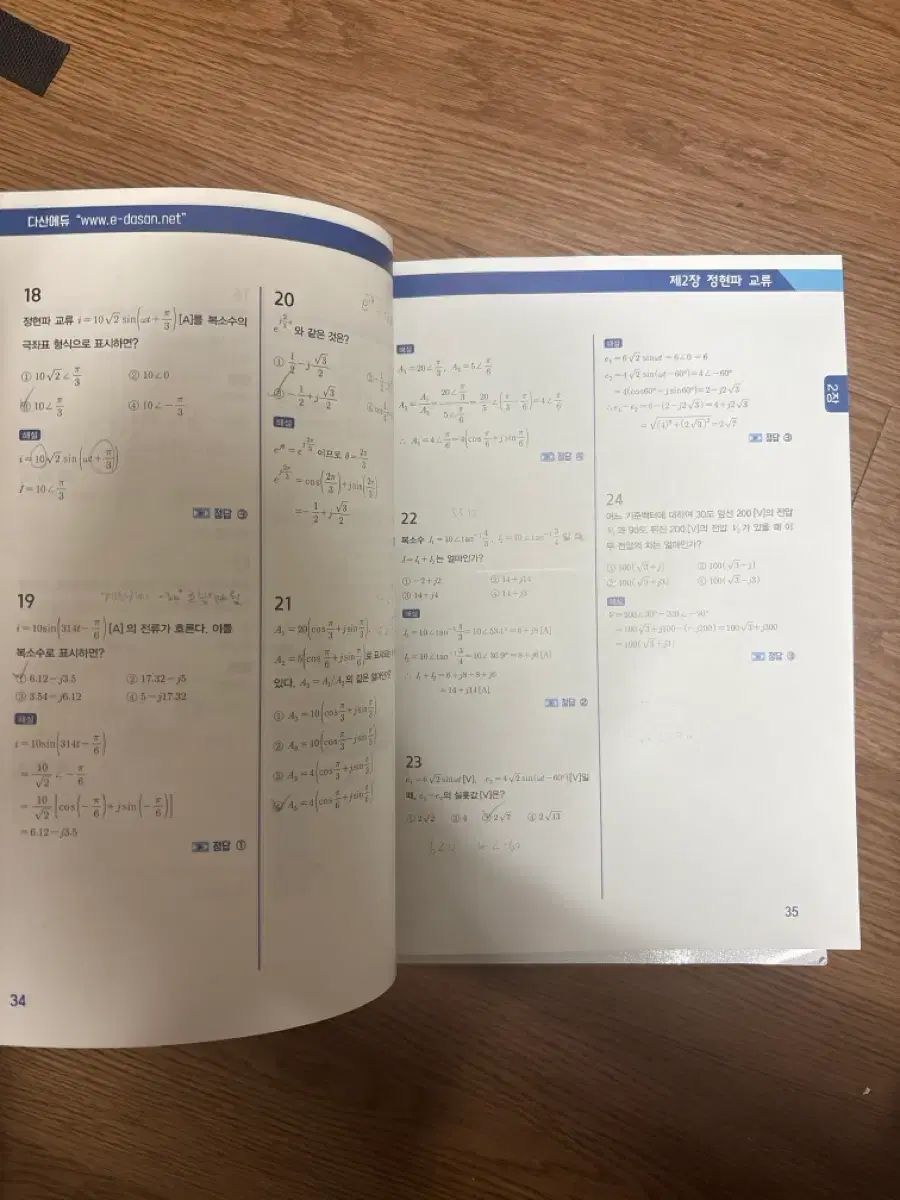 다산에듀 "www.e-dasan.net"
18
정현파 교류 i=10√2 sin(ωt+π/3)[A]를 복소수의
극좌표 형식으로 표시하면?
① 10√2∠π/3 ② 10∠0
③ 10∠π/3 ④ 10∠-π/3
해설
i=10√2 sin(ωt+π/3)
I=10∠π/3
정답 ③
19
i=10sin(314t-π/6)[A]의 전류가 흐른다. 이를
복소수로 표시하면?
① 6.12-j3.5 ② 17.32-j5
③ 3.54-j6.12 ④ 5-j17.32
해설
i=10sin(314t-π/6)
=10/√2∠-π/6
=10/√2[cos(-π/6)+jsin(-π/6)]
=6.12-j3.5
정답 ①
34
20
e^(j2π/3)와 같은 것은?
① 1/2-j√3/2
③ -1/2+j√3/2
해설
e^(jθ)=e^(j2π/3)이므로 θ=2π/3
e^(j2π/3)=cos(2π/3)+jsin(2π/3)
=-1/2+j√3/2
21
A₁=20(cosπ/3+jsinπ/3),
A₂=5(cosπ/6+jsinπ/6)로 표시
있다. A₃=A₁/A₂의 값은 얼마인가?
① A₃=10(cosπ/3+jsinπ/3)
② A₃=10(cosπ/3-jsinπ/3)
③ A₃=4(cosπ/3+jsinπ/3)
④ A₃=4(cosπ/6+jsinπ/6)
제2장 정현파 교류
해설
A₁=20∠π/3, A₂=5∠π/6
A₃=A₁/A₂=20∠π/3/5∠π/6=20/5∠(π/3-π/6)=4∠π/6
∴ A₃=4∠π/6=4(cosπ/6+jsinπ/6)
정답 ④
22
복소수 I₁=10∠tan⁻¹4/3, I₂=10∠tan⁻¹3/4일 때,
I=I₁+I₂는 얼마인가?
① -2+j2 ② 14+j14
③ 14+j4 ④ 14+j3
해설
I₁=10∠tan⁻¹4/3=10∠53.1°=6+j8[A]
I₂=10∠tan⁻¹3/4=10∠36.9°=8+j6[A]
∴ I₁+I₂=6+j8+8+j6
=14+j14[A]
정답 ②
23
e₁=6√2sinωt[V], e₂=4√2sin(ωt-60°)[V]일
때, e₁-e₂의 실횻값[V]은?
① 2√2 ② 4 ③ 2√7 ④ 2√13
해설
e₁=6√2sinωt=6∠0=6
e₂=4√2sin(ωt-60°)=4∠-60°
=4(cos60°-jsin60°)=2-j2√3
∴e₁-e₂=6-(2-j2√3)=4+j2√3
=√((4)²+(2√3)²)=2√7
정답 ③
2장
24
어느 기준벡터에 대하여 30도 앞선 200[V]의 전압
V₁과 90도 뒤진 200[V]의 전압 V₂가 있을 때 이
두 전압의 차는 얼마인가?
① 100(√3+j) ② 100(√3-j)
③ 100(√3+j3) ④ 100(√3-j3)
해설
=100√3+j100-(-j200)=100√3+j300
=100(√3+j3)
정답 ③
35